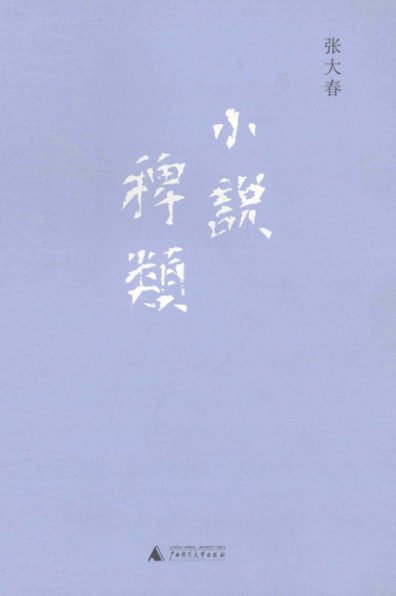 张大春
小說
稗類
广西师范大学出版社